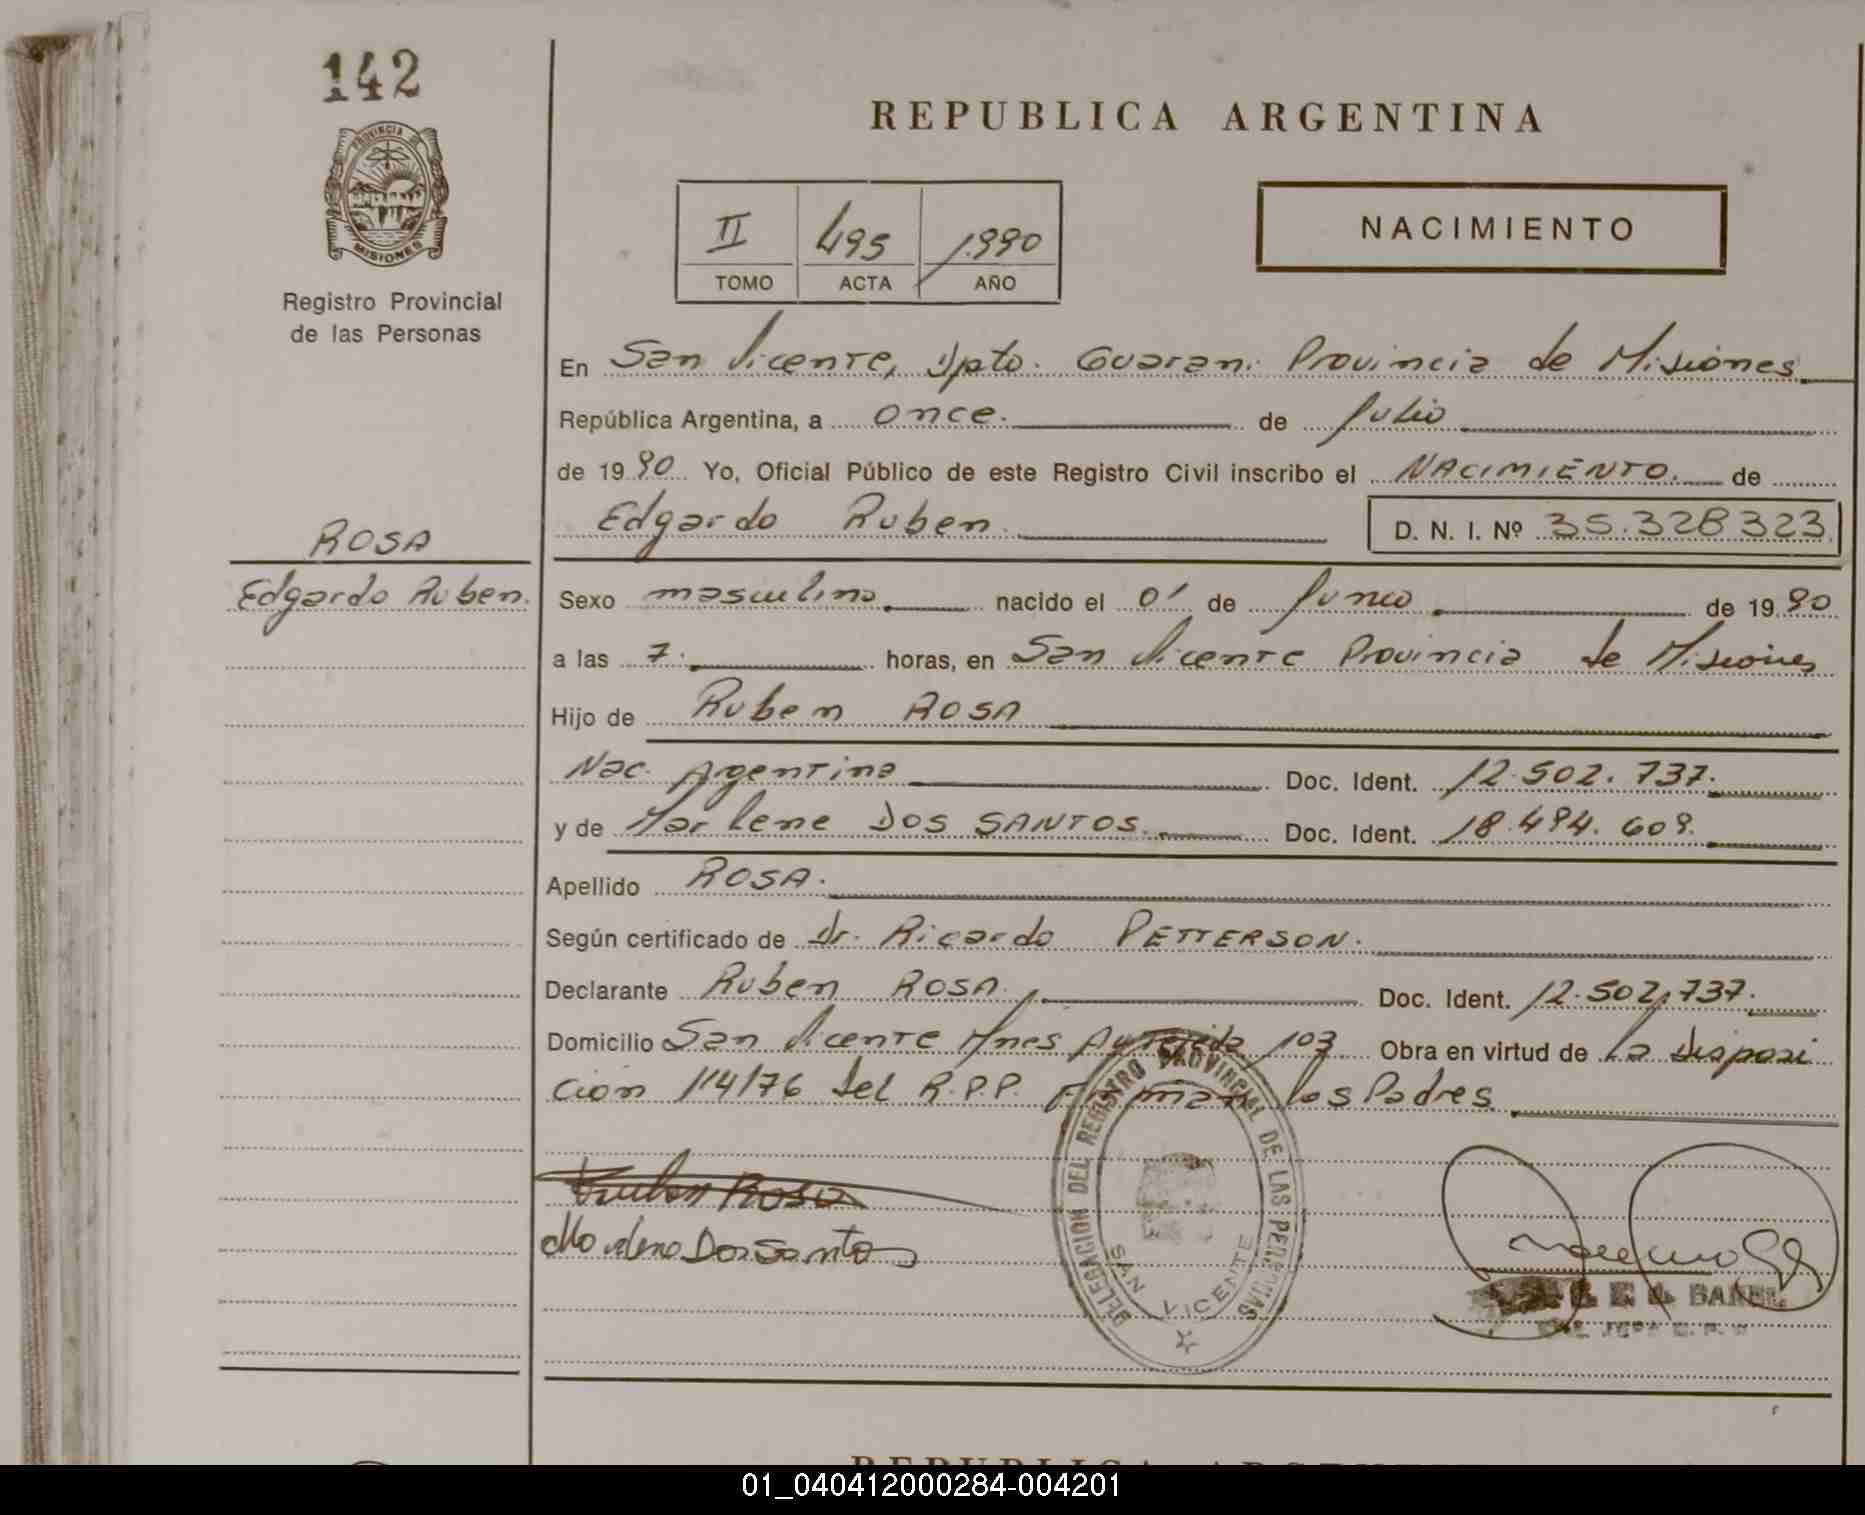 142
PROVINCIA DE
MISIONES
Registro Provincial
de las Personas
REPUBLICA ARGENTINA
II 495 1.990
TOMO ACTA AÑO
NACIMIENTO
En San Vicente, Dpto. Guarani Provincia de Misiones
República Argentina, a once. de Julio
de 19 90 Yo, Oficial Público de este Registro Civil inscribo el NACIMIENTO. de
Edgardo Ruben. D. N. I. Nº 35.328323
ROSA
Edgardo Ruben.
Sexo masculino nacido el 01 de Junio de 19 90
a las 7. horas, en San Vicente Provincia de Misiones
Hijo de Ruben ROSA
Nac. Argentina Doc. Ident. 12.502.737.
y de Marlene DOS SANTOS. Doc. Ident. 18.494.609.
Apellido ROSA.
Según certificado de Dr. Ricardo PETTERSON.
Declarante Ruben ROSA. Doc. Ident. 12.502.737.
Domicilio San Vicente Mnes 103 Obra en virtud de la Disposi
ción 114/76 del R.P.P. Firman los Padres
Ruben Rosa
Dos Santos
DELEGACION DEL REGISTRO PROVINCIAL DE LAS PERSONAS
SAN VICENTE
REPUBLICA ARGENTINA
01_040412000284-004201